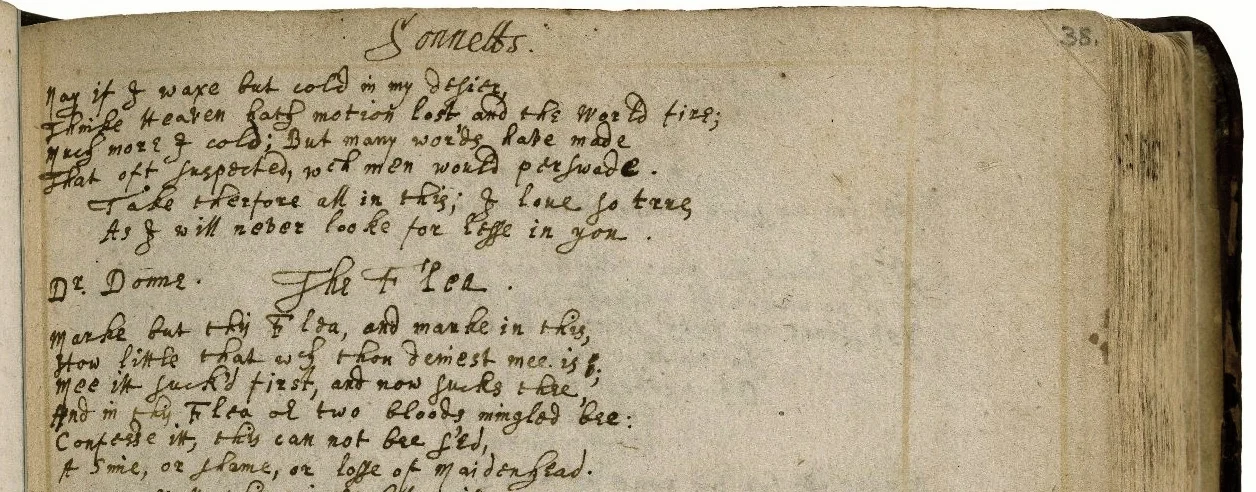 Sonnetts.
38.
Nay if I waxe but cold in my desier,
Thinke Heaven hath motion lost and the World fire;
Much more I cold; But many words have made
That oft suspected, wch men would perswade.
Take therfore all in this; I loue so true,
As I will never looke for lesse in you.
Dr. Donne. The Flea.
Marke but this Flea, and marke in this,
How little that wch thou deniest mee is;
Mee itt suck'd first, and now sucks thee,
And in this Flea or two bloods mingled bee:
Confesse itt, this can not bee s'ed,
A Sine, or shame, or losse of Maidenhead.